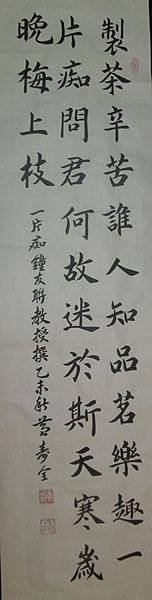 製茶辛苦誰人知品茗樂趣一
片痴問君何故迷於斯天寒歲
晚梅上枝
一片痴鐘友聯教授撰乙未秋黃壽全